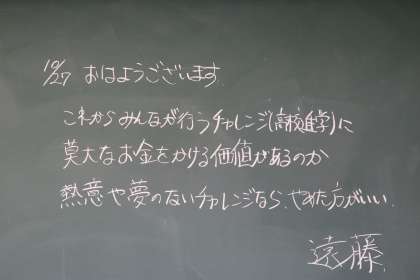 10/27 おはようございます
これからみんなが行うチャレンジ(高校進学)に
莫大なお金をかける価値があるのか
熱意や夢のないチャレンジなら、やめた方がいい.
遠藤